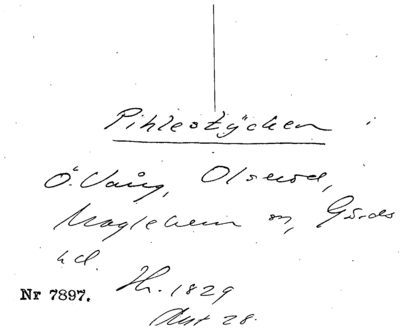 Pihlestycken
Ö. Vång, Olseröd,
Maglehem sn, Gärds
hd.
Nr 7897. Hr. 1829
Akt 28.